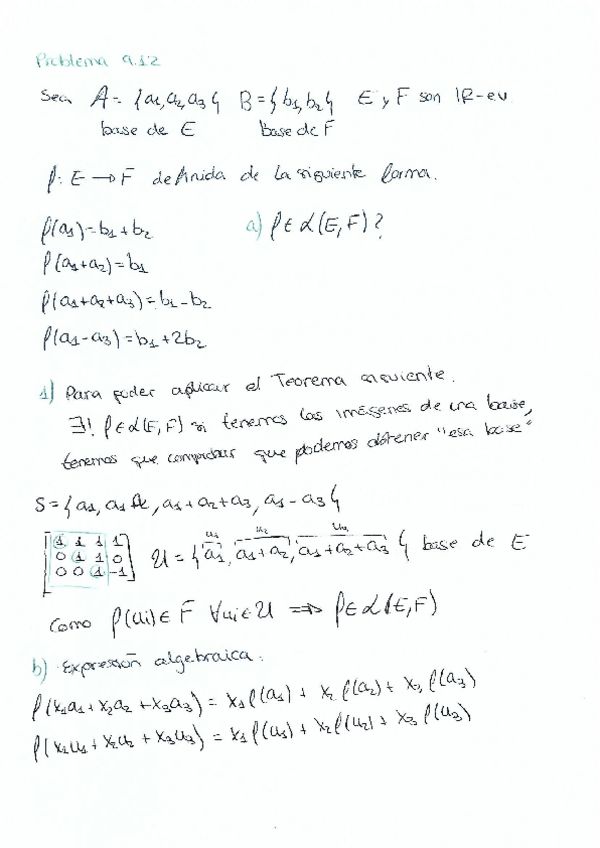 Problema 9.12
Sea A = {a1, a2, a3} B = {b1, b2} E y F son IR-ev
base de E base de F
f: E → F definida de la siguiente forma.
f(a1) = b1 + b2 a) f ∈ L(E, F)?
f(a1+a2) = b1
f(a1+a2+a3) = b1 - b2
f(a1-a3) = b1 + 2b2
1) Para poder aplicar el Teorema siguiente.
∃! f ∈ L(E, F) si tenemos las imágenes de una base,
tenemos que comprobar que podemos obtener "esa base"
S = {a1, a1 , a1 + a2 + a3, a1 - a3}
u1 u2
1 1 1 1
0 1 1 0 U = {a1, a1+a2, a1+a2+a3} base de E
0 0 1 -1
Como f(ui) ∈ F ∀ui ∈ U ⟹ f ∈ L(E, F)
b) Expresión algebraica.
f(x1a1 + x2a2 + x3a3) = x1 f(a1) + x2 f(a2) + x3 f(a3)
f(x1u1 + x2u2 + x3u3) = x1 f(u1) + x2 f(u2) + x3 f(u3)